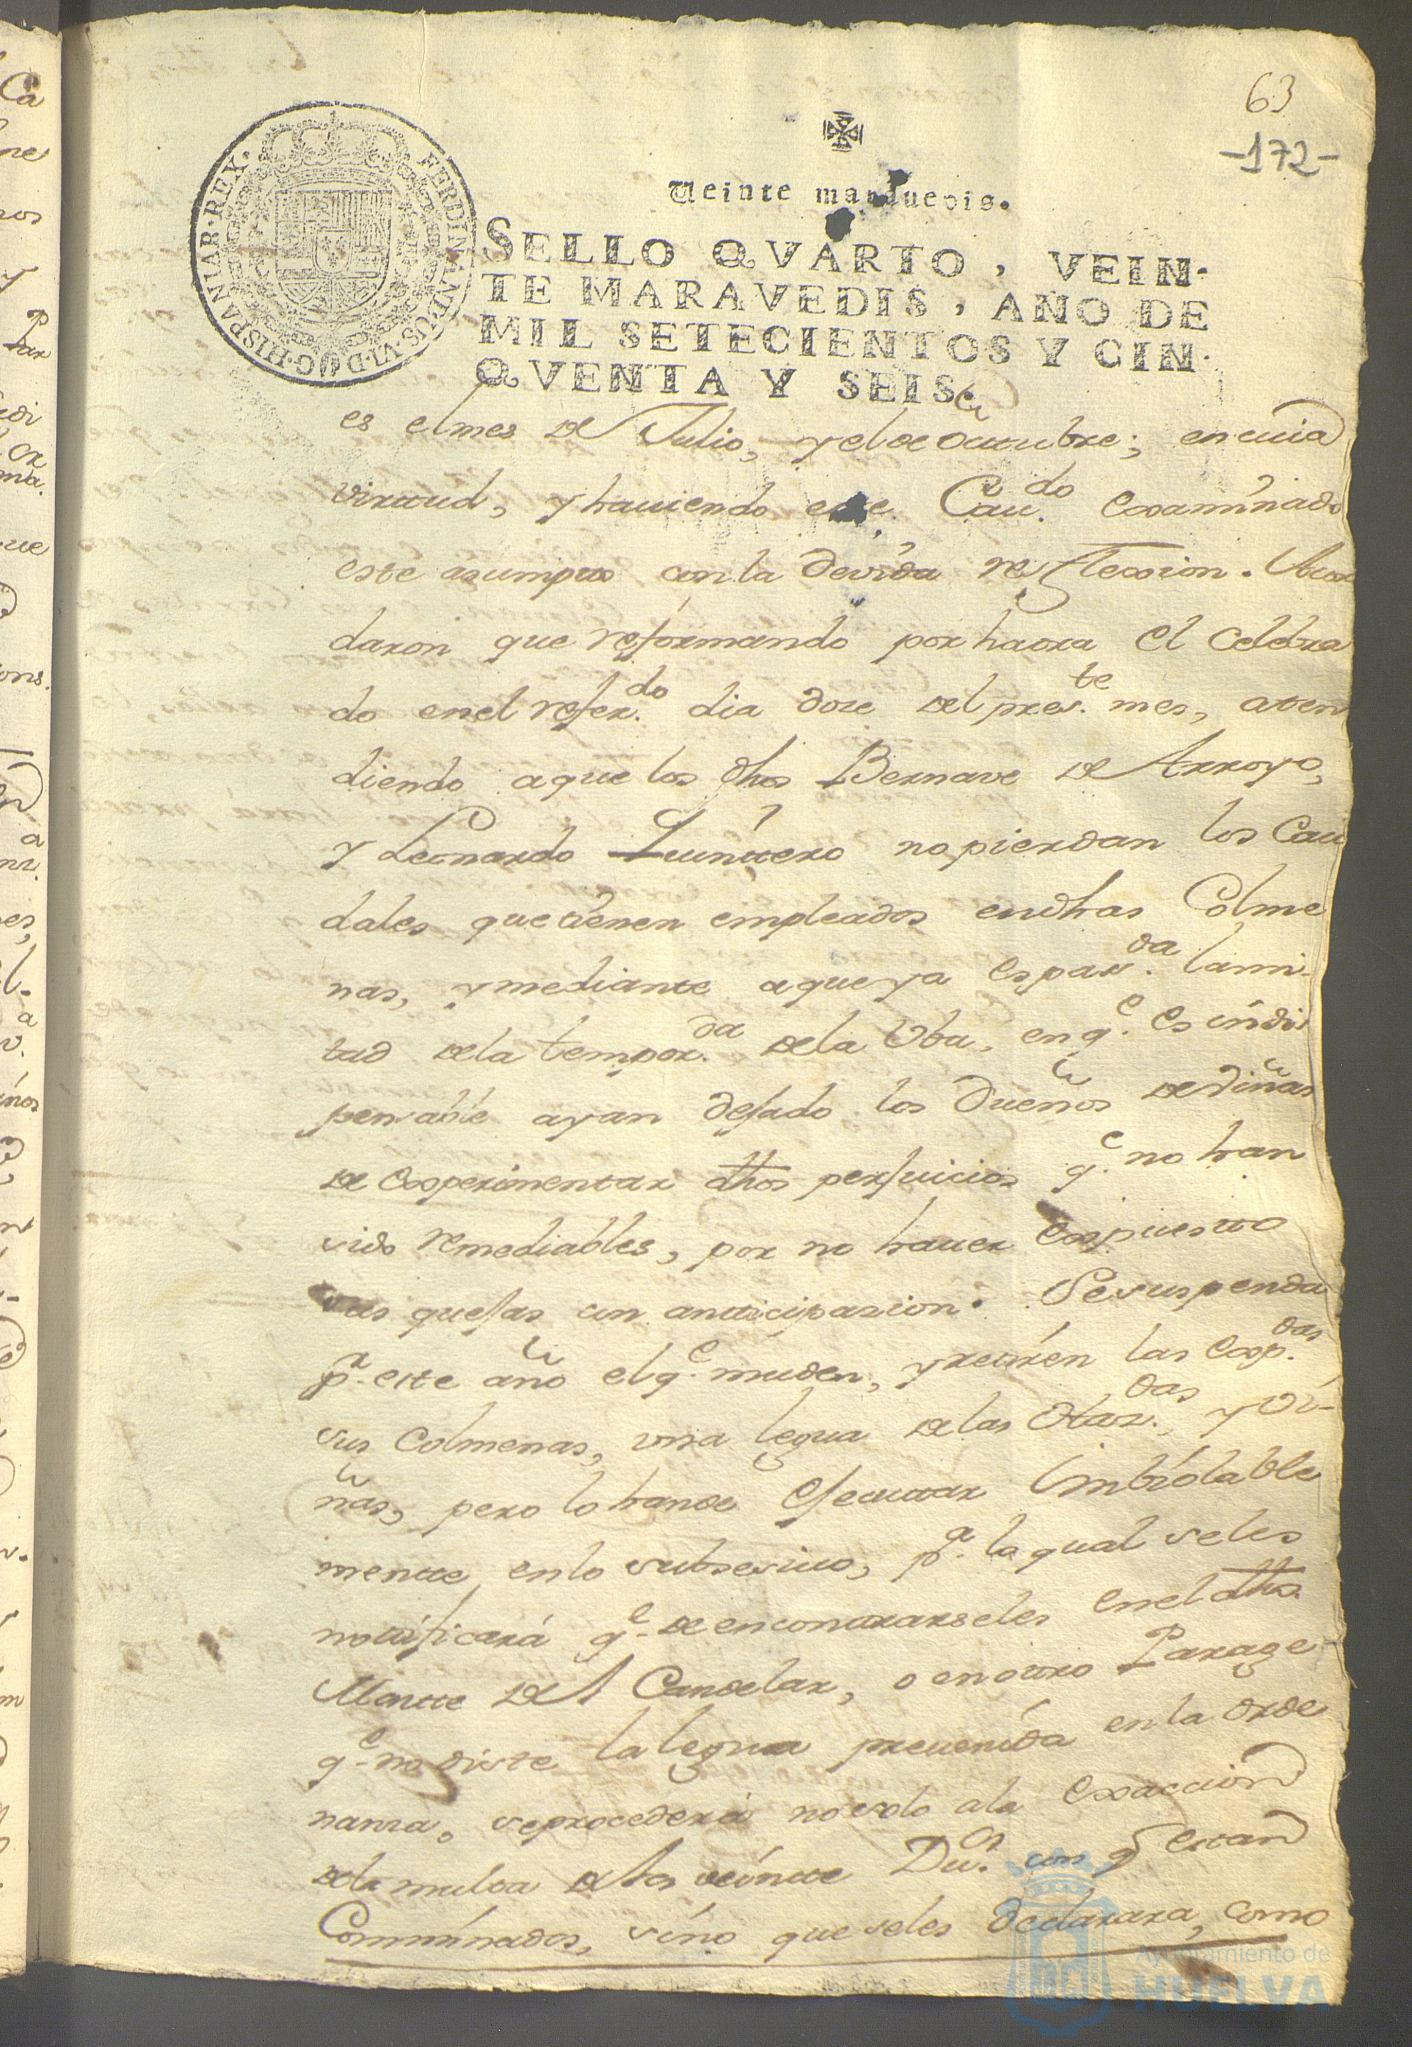 63
-172-
Veinte marauedis.
SELLO QVARTO, VEIN-
TE MARAVEDIS, AÑO DE
MIL SETECIENTOS Y CIN-
QVENTA Y SEIS.
FERDINANDUS·VI·D·G·HISPANIAR·REX·
es el mes de Julio, y el de Octubre; en cuia
virtud, y hauiendo este Cau.do examinado
este asumpto con la devida reflexion. Acor
daron que reformando por haora el celebra
do en el refer.do dia doze del pres.te mes, aten
diendo a que los dhos Bernave de Arroyo,
y Leonardo Quintero no pierdan los Cau
dales que tienen empleados en dhas Colme
nas, y mediante a que ya es pasa.da la mi-
tad de la tempor.da de la Vba, en q.e es indis
pensable ayan dejado los Dueños de viñas
de experimentar dhos perjuicios q.e no han
sido remediables, por no hauer expuesto
sus quejas con anticipazion. Se suspenda
p.r este año el q.e muden, y retiren las exp.das
sus Colmenas, vna legua de las Haz.das, y Vi-
ñas, pero lo han de ejecutar imbiolable
mente en lo subsesiuo, p.a lo qual se les
notificará q.e de encontrarseles en el dho
Monte del Candelar, o en otro Parage
q.e no diste la legua preuenida en la orde
nanza, se procederá no solo a la exaccion
de la multa de los veinte Du.os con q estan
Comminados, sino que se les declarara, como
Ayuntamiento de
HUELVA